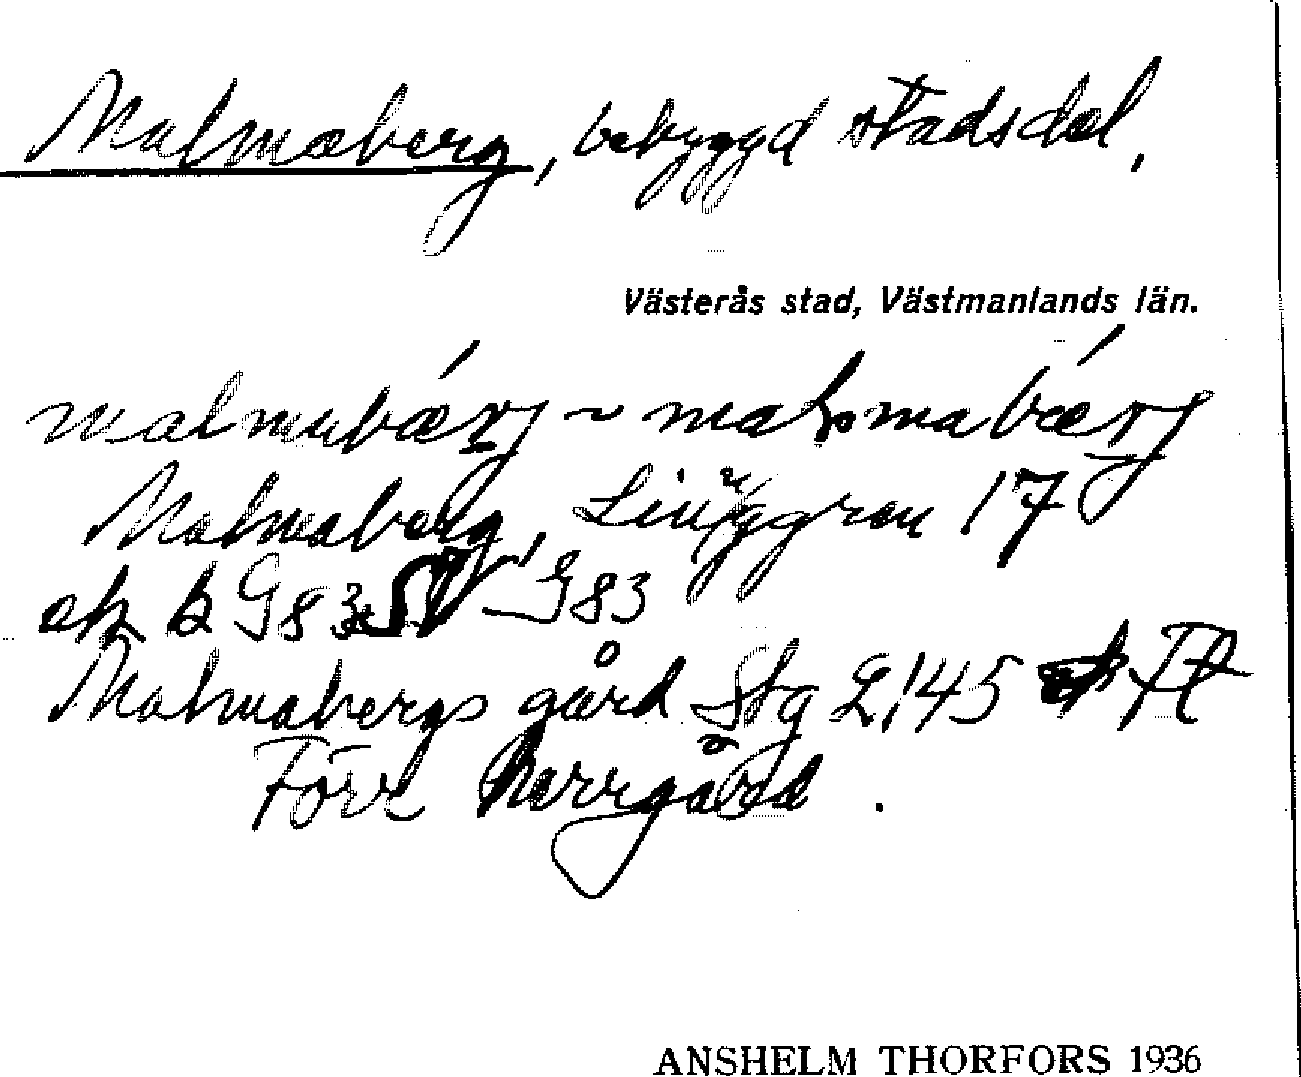 Malmaberg, bebyggd stadsdel,
Västerås stad, Västmanlands län.
malmabærj ~ malmabærj
Malmaberg, Ljunggren 17
ek b G83 G83
Malmabergs gård Stg 2145
Förr herrgård.
ANSHELM THORFORS 1936